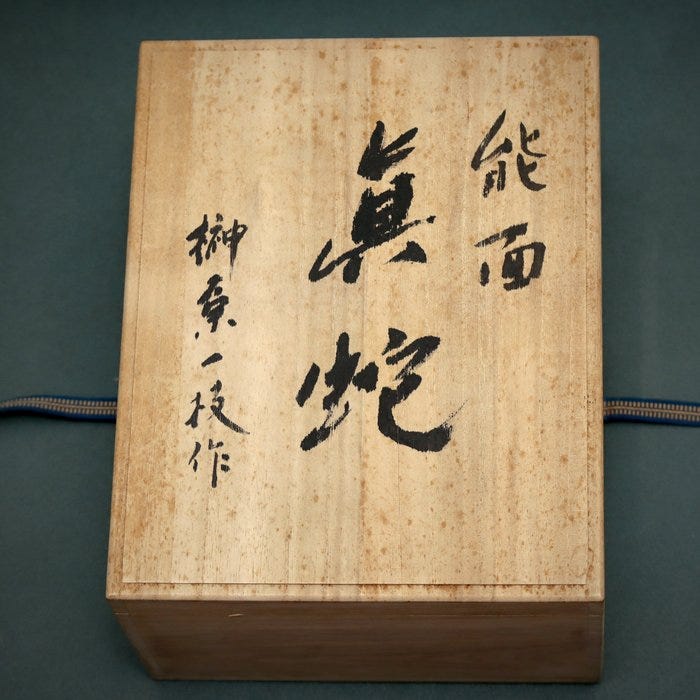 能面
眞蛇
榊原一枝作